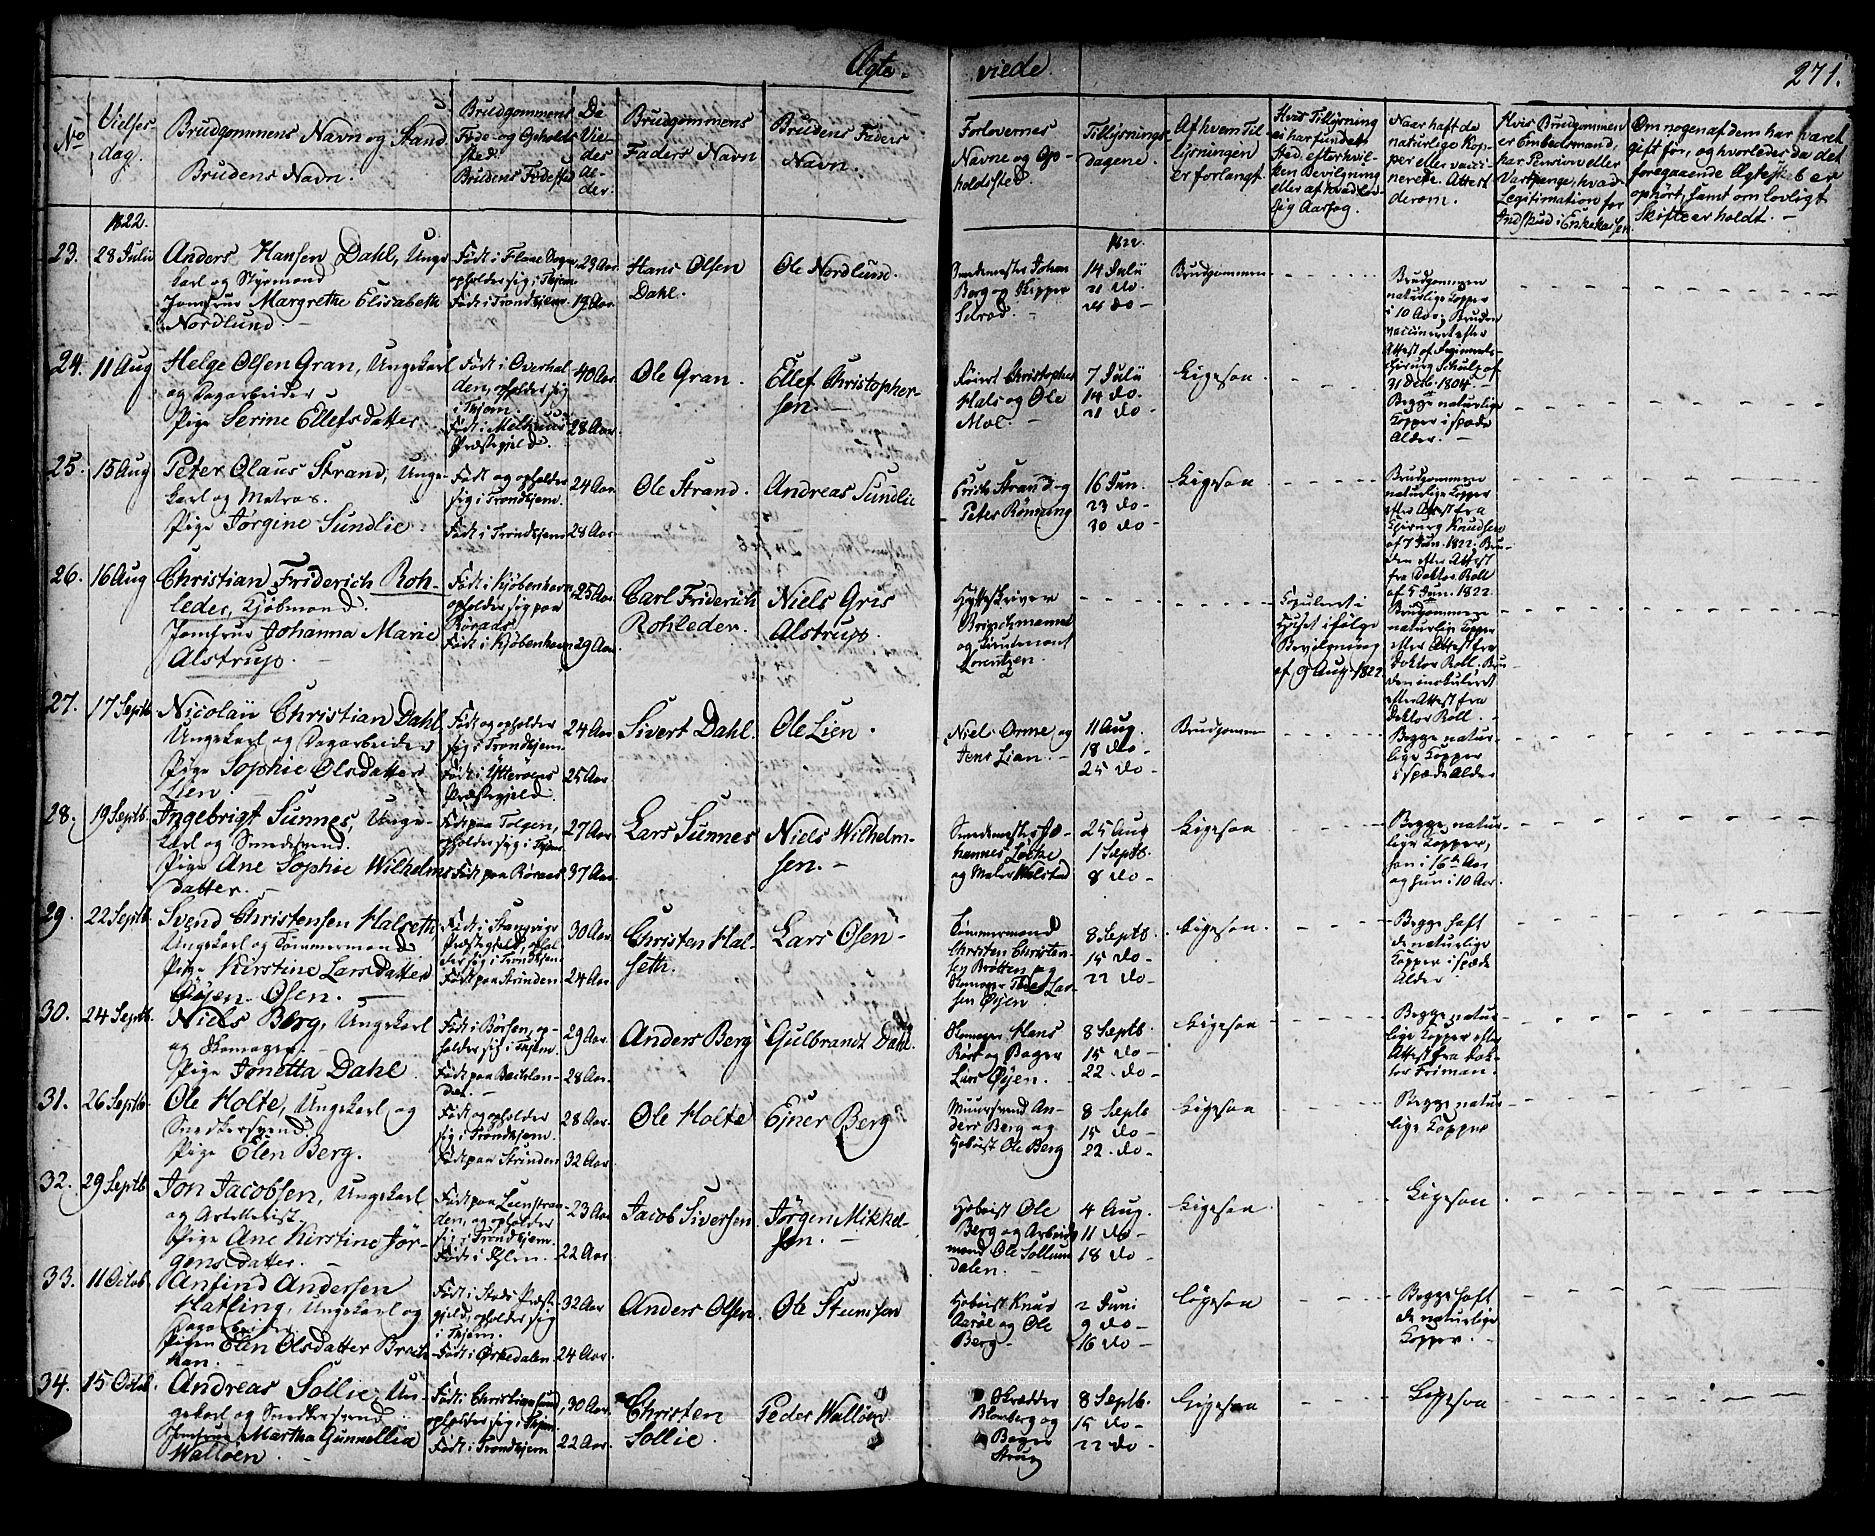 Ægte-
viede
271.
No
Vielses
dag.
Brudgommens Navn og Stand
Brudens Navn.
Brudgommens
Føde- og Opholds
sted.
Brudens Fødested
De
Vie-
des
Al-
der.
Brudgommens
Faders Navn
Brudens Faders
Navn.
Forlovernes
Navne og Op-
holdssted.
Tillysnings-
dagene.
Af hvem Til-
lysningen
er forlangt.
Hvis Tillysning
ei har fundet
Sted, efter hvil-
ken Bevilgning
eller af hvad lov-
sig Aarsag.
Naar haft de
naturlige Kop-
per eller vacci-
nerede. Attest
derom.
Hvis Brudgommen
er Embedsmand,
har Pension eller
Vartpenge, hvad
Legitimation for
Indskud i Enkekassen
Om nogen af dem har været
gift før, og hvorledes da det
foregaaende Ægteskab er
ophørt, samt om lovligt
Skifte er holdt.
1822.
23.
28 Julii
Anders Hansen Dahl, Unge
karl og Styrmand
Jomfrue Margrethe Elisabeth
Nordlund.
opholder sig i Thjem
Født i Trondhjem
23 Aar
19 Aar
Hans Olsen
Dahl.
Ole Nordlund.
Smedemester Johan
Berg og Skipper
1822.
14 Julii
21 do
28 do
Brudgommen
Brudgommen
naturlige Kopper
i 10 Aar, Bruden
vaccineret efter
Attest af Regiments-
Chirurg Schultz af
31 Decb. 1804.
24.
11 Aug
Helge Olsen Gran, Ungekarl
og Dagarbeider
Pige Serine Ellefsdatter
Født i Overhal-
den, opholder sig
i Thjem
Født i Melhuus
Præstegjeld.
40 Aar
28 Aar
Ole Gran.
Ellef Christopher-
sen.
Christopher
Hals og Ole
Mol.
7 Julii
14 do.
21 do
Ligesaa
Begge naturlige
Kopper i spæde
Alder.
25.
15 Aug
Peter Olaus Strand, Unge-
karl og Matros.
Pige Jørgine Sundlie.
Født og opholder
sig i Trondhjem.
Født i Trondhjem
24 Aar
28 Aar
Ole Strand.
Andreas Sundlie
Erich Strand og
Peter Rønning
16 Jun.
23 do
30 do
Ligesaa
Brudgommen
naturlige Kopper
efter Attest fra
Chirurg Knudsen
af 7 Jun. 1822. Bru-
den efter Attest
fra Doktor Roll
af 5 Jun. 1822.
26.
16 Aug
Christian Friderich Roh-
leder, Kjøbmand.
Jomfrue Johanna Marie
Alstrup.
Født i Kjøbenhavn
opholder sig paa
Røraas
Født i Kjøbenhavn
25 Aar
29 Aar
Carl Friderich
Rohleder.
Niels Gris
Alstrup.
Hytteskriver
Brinchmann
og Lieutenant
Lorentzen.
Copuleret i
Huset ifølge
Bevilgning
af 9 Aug. 1822
Brudgommen
naturlige Kopper
efter Attest fra
Doktor Roll. Bru-
den inokuleret
efter Attest fra
Doktor Roll.
27.
17 Septb
Nicolaii Christian Dahl
Ungekarl og Dagarbeider
Pige Sophie Olsdatter
Lien.
Født og opholder
sig i Trondhjem
Født i Ytterøens
Præstegjeld.
24 Aar
25 Aar
Sivert Dahl.
Ole Lien.
Niel Orme og
Jens Lian.
11 Aug.
18 do
25 do
Brudgommen
Begge natur-
lige Kopper
i spæde Alder
28.
19 Septb.
Ingebrigt Sunnes, Unge-
karl og Smedesvend.
Pige Ane Sophie Wilhelms
datter.
Født paa Tolgen,
opholder sig i Thjem
Født paa Røraas
27 Aar
37 Aar
Lars Sunnes
Niels Wilhelm-
sen.
Smedemester Jo-
hannes Løcke
og Maler Wolstad
25 Aug
1 Septb.
8 do
Ligesaa
Begge natur-
lige Kopper,
han i 16de Aar
og hun i 10 Aar.
29.
22 Septb.
Svend Christensen Halseth,
Ungekarl og Tømmermand
Pige Kirstine Larsdatter
Øyen. Osen.
Født i Stangvigs
Præstegjeld, ophol-
der sig i Trondhjem
Født paa Strinden
30 Aar
24 Aar
Christen Hal-
seth.
Lars Osen
Tømmermand
Christen Christen-
sen Bratten og
Skomager Peder Lar-
sen Øyen
8 Septb.
15 do
22 do
Ligesaa
Begge haft
de naturlige
Kopper i spæde
Alder
30.
24 Septb.
Niels Berg, Ungekarl
og Skomager
Pige Jonetta Dahl.
Født i Børsen, op-
holder sig i Thjem.
Født paa Bachlan-
det.
29 Aar
28 Aar
Anders Berg
Gulbrandt Dahl.
Skomager Hans
Røst og Bager
Lars Øyen.
8 Septb.
15 do
22. do
Ligesaa
Begge natur-
lige Kopper efter
Attest fra Dok-
tor Friman.
31.
26 Septb.
Ole Holte, Ungekarl og
Snedkersvend.
Pige Elen Berg.
Født og opholder
sig i Trondhjem.
Født paa Strinden
28 Aar
32 Aar
Ole Holte
Ejner Berg
Muursvend An-
ders Berg og
Hoboist Ole Berg
8 Septb
15 do
22 do
Ligesaa
Begge natur-
lige Kopper
32.
29 Septb
Jon Jacobsen, Ungekarl
og Artillerist.
Pige Ane Kirstine Jør-
gensdatter.
Født paa Leenstran-
den, og opholder
sig i Trondhjem.
23 Aar
22 Aar
Jacob Siversen
Jørgen Mikkel-
sen.
Hoboist Ole
Berg og Arbeids-
mand Ole Sollum
dalen.
4 Aug.
11 do
18 do
Ligesaa
Ligesaa
33.
11 Octob.
Anfind Andersen
Hatling, Ungekarl og
Dagarbeider
Pigen Elen Olsdatter Brech-
kan.
Født i Stods Præste-
gjeld, opholder sig
i Thjem.
Født i Ørkedalen
32 Aar
24 Aar
Anders Olsen
Ole Stumsen
Hoboist Knud
Aarøl og Ole
Berg
2 Juni
9 do
16 do
Ligesaa
Begge haft
de naturlige
Kopper.
34.
15 Octob.
Andreas Sollie, Un-
gekarl og Snedkersvend
Jomfrue Martha Gunnellia
Walløen.
Født i Christiansund,
opholder sig i Thjem
Født i Trondhjem
30 Aar
22 Aar
Christen
Sollie.
Peder Walløen
Skrædder
Blomberg og
Bager
Strøm
8 Septb.
15 do
22 do
Ligesaa
Ligesaa